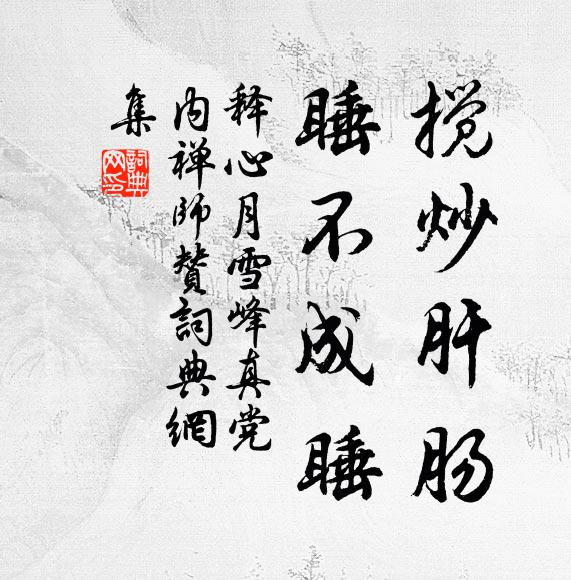 搅炒肝肠
睡不成睡
释心月雪峰真党
内禅师赞詞典網
集
詞典
网印